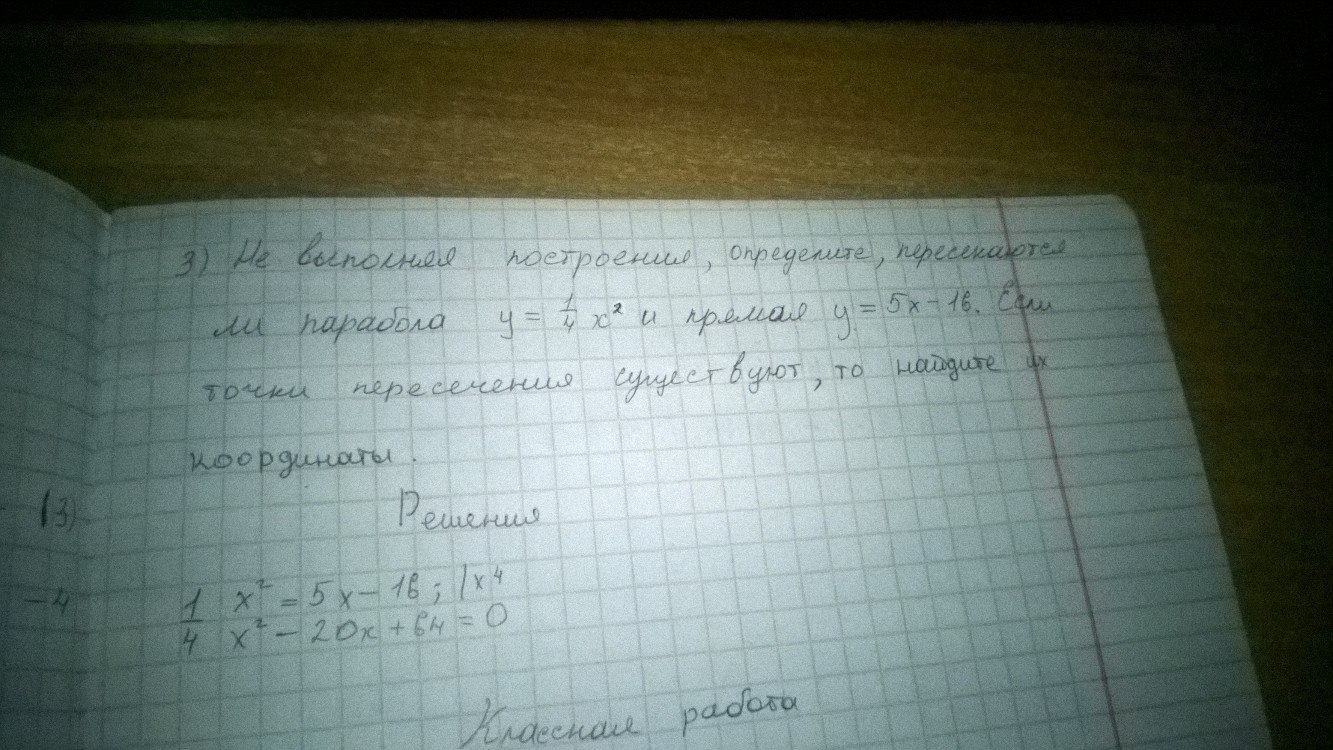 3) Не выполняя построения, определите, пересекаются
ли парабола y = 1/4 x² и прямая y = 5x - 16. Если
точки пересечения существуют, то найдите их
координаты.
3)
Решения
-4
1/4 x² = 5x - 16; | x 4
x² - 20x + 64 = 0
Классная работа